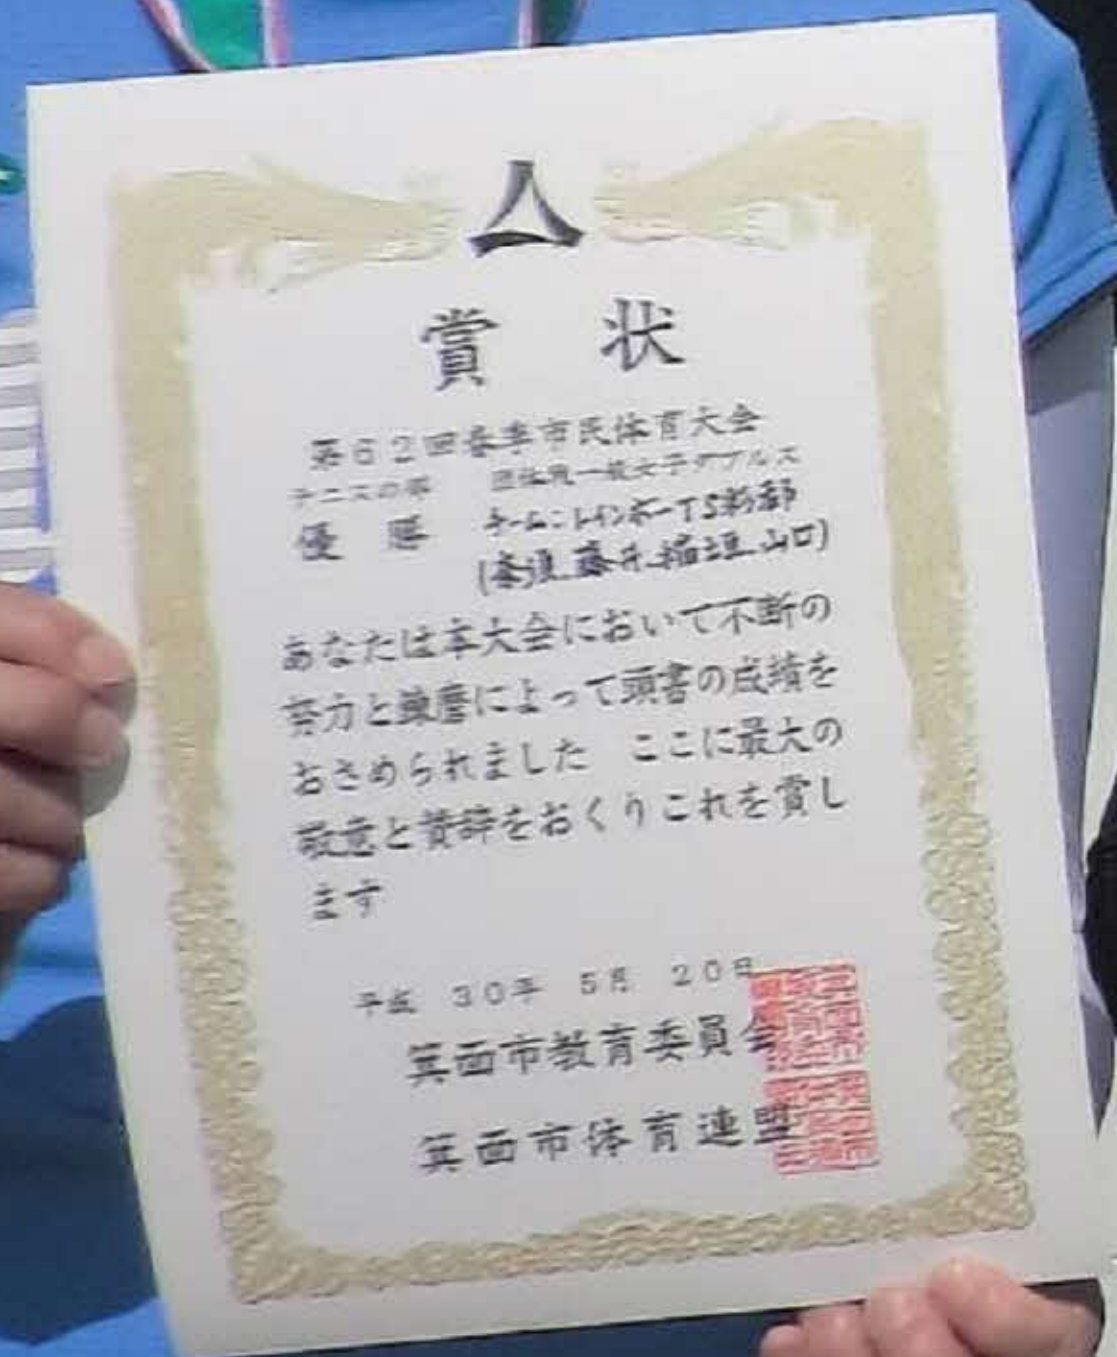 賞状
第62回春季市民体育大会
テニスの部 団体戦一般女子ダブルス
優勝 チーム:レインボーTS彩都
藤井 稲垣 山口)
あなたは本大会において不断の
努力と錬磨によって頭書の成績を
おさめられました ここに最大の
敬意と賛辞をおくりこれを賞し
ます
平成 30年 5月 20日
箕面市教育委員会
箕面市体育連盟